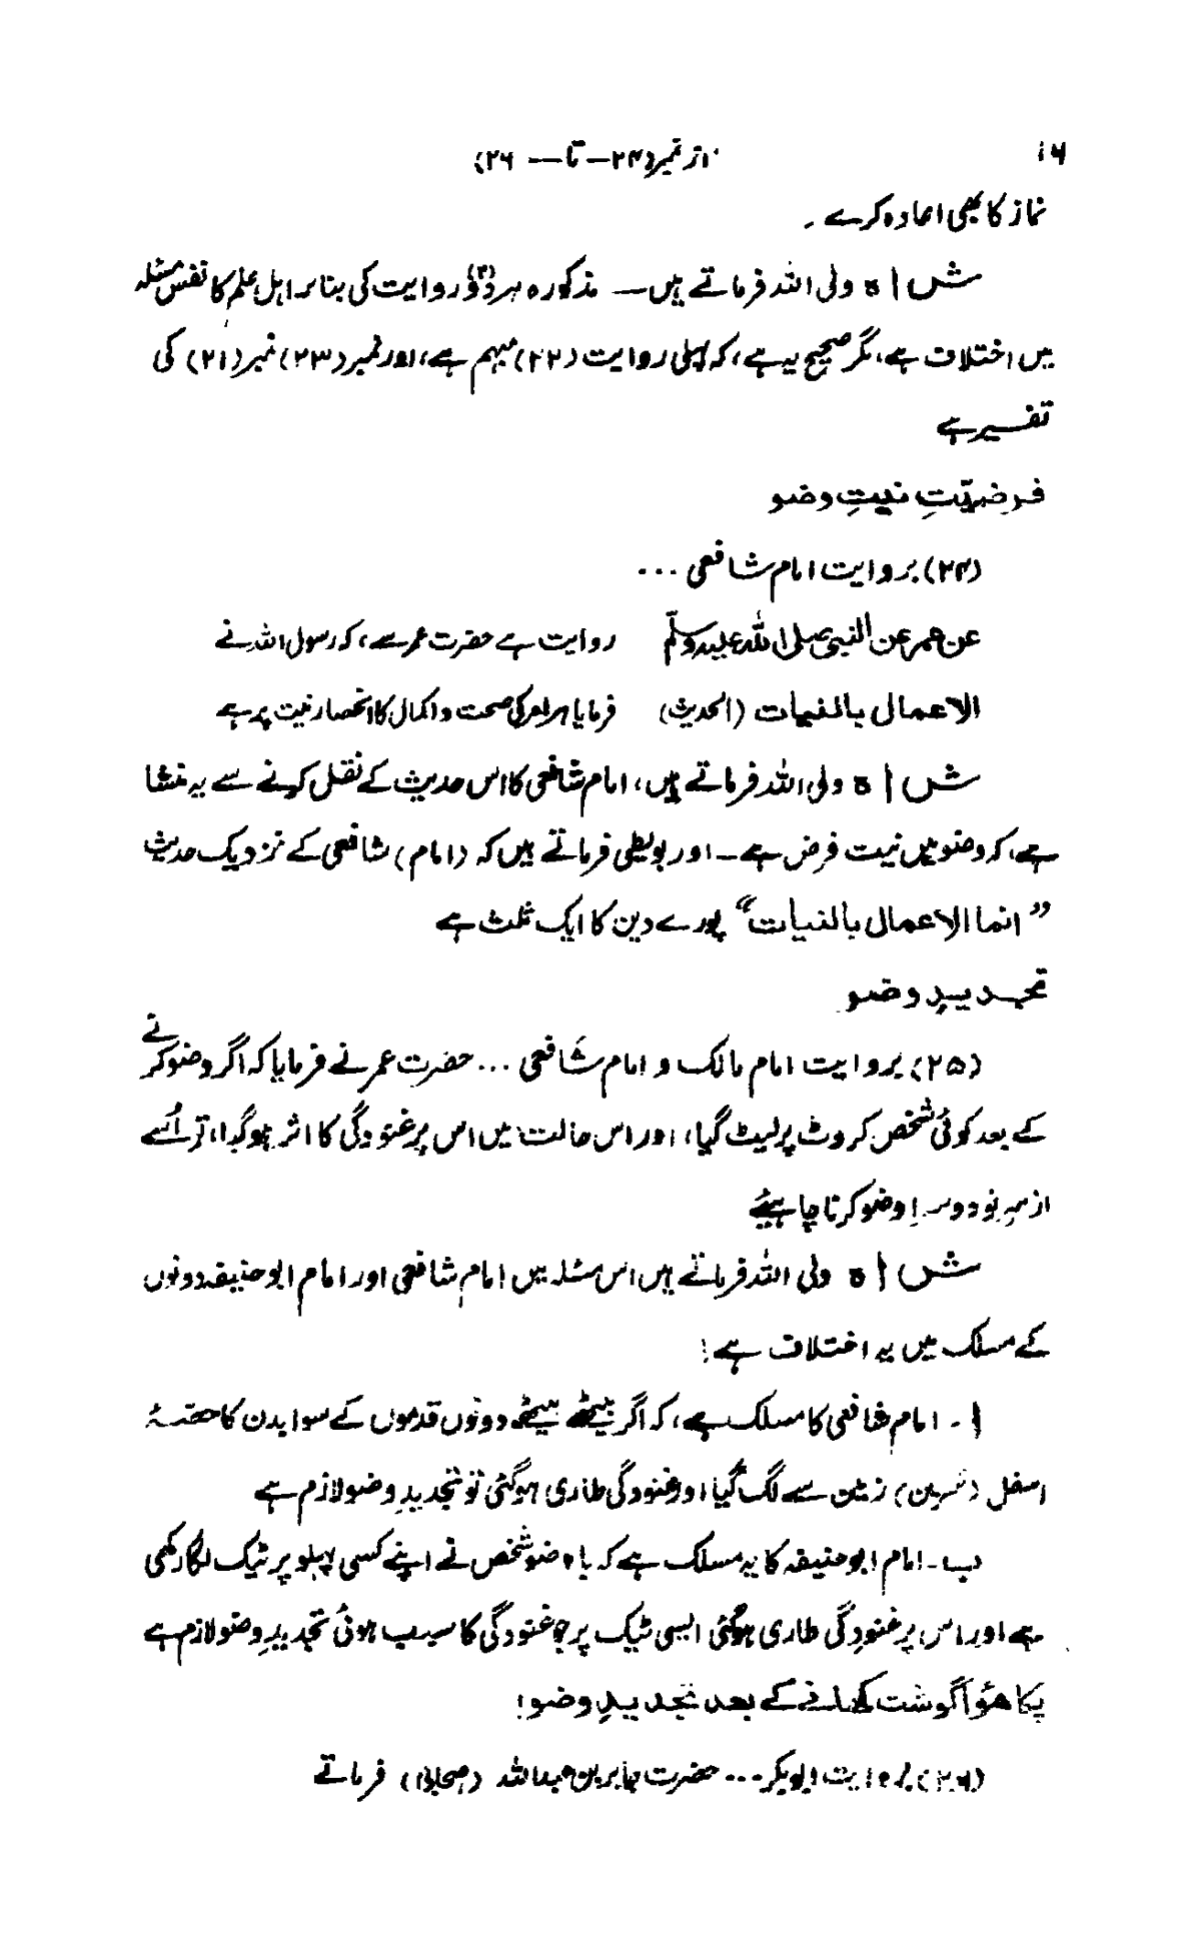 ۱۶ از نمبر(۲۴ – تا – ۲۶)
نماز کا بھی اعادہ کرے ۔
شاہ ولی اللہ فرماتے ہیں ــ مذکورہ ہر دو(۲) روایت کی بنا پر اہل علم کا نفس مسئلہ
میں اختلاف ہے، مگر صحیح یہ ہے، کہ پہلی روایت (۲۲) مبہم ہے، اور نمبر (۲۳) نمبر (۲۱) کی
تفسیر ہے
فرضیّتِ نیتِ وضو
(۲۴) بروایت امام شافعی ...
عن عمر عن النبی صلی اللہ علیہ وسلّم روایت ہے حضرت عمر سے، کہ رسول اللہ نے
الاعمال بالنیات (الحدیث) فرمایا ہر امر کی صحت و اکمال کا انحصار نیت پر ہے
شاہ ولی اللہ فرماتے ہیں، امام شافعی کا اس حدیث کے نقل کرنے سے یہ منشا
ہے، کہ وضو میں نیت فرض ہے ــ اور بویطی فرماتے ہیں کہ (امام) شافعی کے نزدیک حدیث
”انما الاعمال بالنیات“ پورے دین کا ایک ثلث ہے
تجدیدِ وضو
(۲۵) بروایت امام مالک و امام شافعی ... حضرت عمر نے فرمایا کہ اگر وضو کرنے
کے بعد کوئی شخص کروٹ پر لیٹ گیا، اور اس حالت میں اس پر غنودگی کا اثر ہوگیا، تو اُسے
ازسرِ نو دوسرا وضو کرنا چاہیئے
شاہ ولی اللہ فرماتے ہیں اس مسئلہ میں امام شافعی اور امام ابو حنیفہ دونوں
کے مسلک میں یہ اختلاف ہے:
ا۔ امام شافعی کا مسلک ہے، کہ اگر بیٹھے بیٹھے دونوں قدموں کے سوا بدن کا حصّہٴ
اسفل (سرین) زمین سے لگ گیا، اور غنودگی طاری ہوگئی تو تجدیدِ وضو لازم ہے
ب۔ امام ابو حنیفہ کا یہ مسلک ہے کہ باوضو شخص نے اپنے کسی پہلو پر ٹیک لگا رکھی
ہے اور اس پر غنودگی طاری ہوگئی ایسی ٹیک پر جو غنودگی کا سبب ہوئی تجدیدِ وضو لازم ہے
پکا ھوٴا گوشت کھانے کے بعد تجدیدِ وضو!
(۲۶) بروایت ابوبکر ... حضرت جابر بن عبداللہ (صحابی) فرماتے